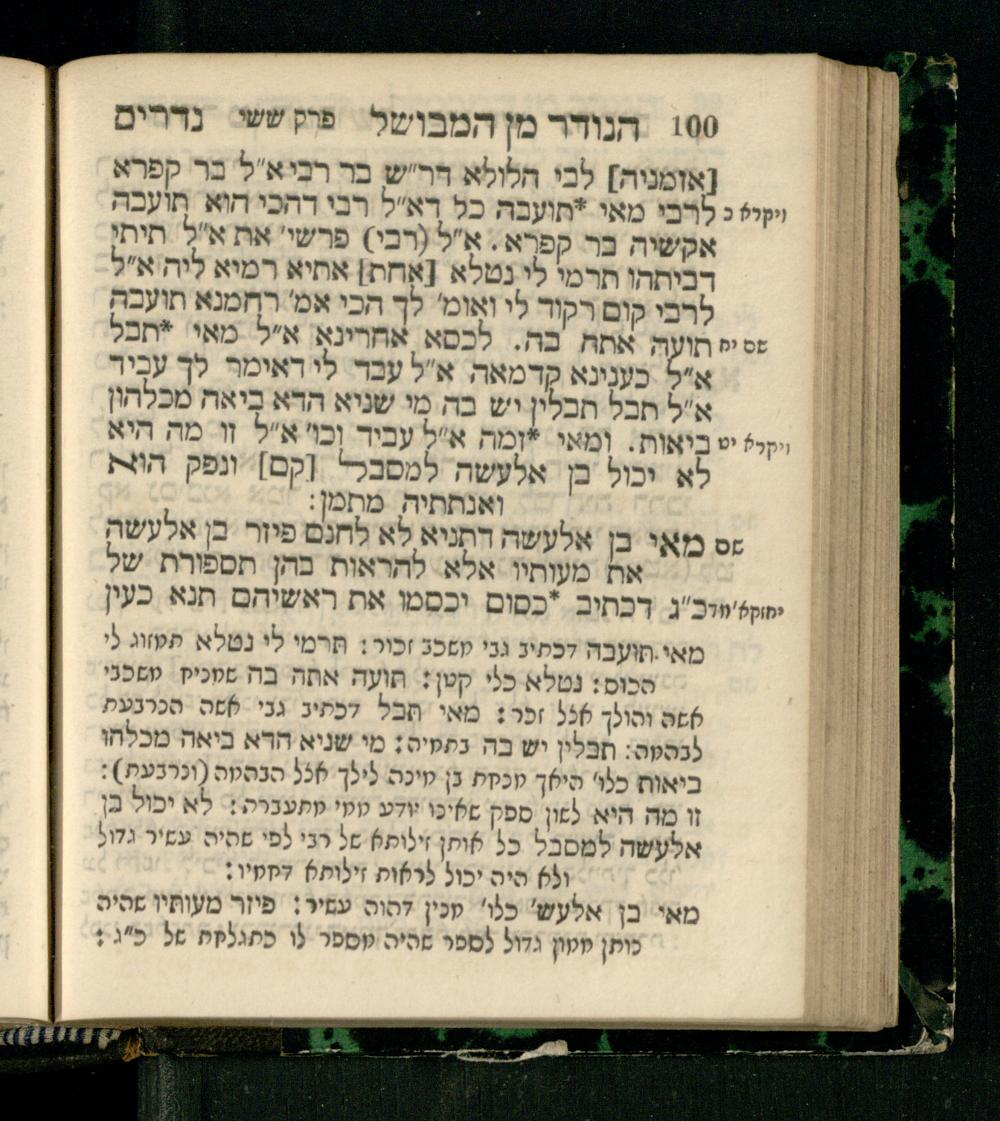 100 הנודר מן המבושל פרק ששי נדרים
[אזמניה] לבי הלולא דר״ש בר רבי א״ל בר קפרא
ויקרא כ לרבי מאי *תועבה כל דא״ל רבי דהכי הוא תועבה
אקשיה בר קפרא. א״ל (רבי) פרשי׳ את א״ל תיתי
דביתהו תרמי לי נטלא [אחת] אתיא רמיא ליה א״ל
לרבי קום רקוד לי ואומ׳ לך הכי אמ׳ רחמנא תועבה
שם יח תועה אתה בה. לכסא אחרינא א״ל מאי *תבל
א״ל כענינא קדמאה א״ל עבד לי דאימר לך עביד
א״ל תבל תבלין יש בה מי שניא הדא ביאה מכלהון
ויקרא יט ביאות. ומאי *זמה א״ל עביד וכו׳ א״ל זו מה היא
לא יכול בן אלעשה למסבל [קם] ונפק הוא
ואנתתיה מתמן:
שם מאי בן אלעשה דתניא לא לחנם פיזר בן אלעשה
את מעותיו אלא להראות בהן תספורת של
יחזקא׳ מד כ״ג דכתיב *כסום יכסמו את ראשיהם תנא כעין
מאי תועבה דכתיב גבי משכב זכור: תרמי לי נטלא תמזוג לי
הכוס: נטלא כלי קטן: תועה אתה בה שמניח משכבי
אשה והולך אצל זכר: מאי תבל דכתיב גבי אשה הנרבעת
לבהמה: תבלין יש בה בתמיה: מי שניא הדא ביאה מכלהו
ביאות כלו׳ היאך מנחת בן מינה לילך אצל הבהמה (ונרבעת):
זו מה היא לשון ספק שאינו יודע ממי מתעברה: לא יכול בן
אלעשה למסבל כל אותן זילותא של רבי לפי שהיה עשיר גדול
ולא היה יכול לראות זילותא דחמיו:
מאי בן אלעש׳ כלו׳ מנין דהוה עשיר: פיזר מעותיו שהיה
נותן ממון גדול לספר שהיה מספר לו כתגלחת של כ״ג: